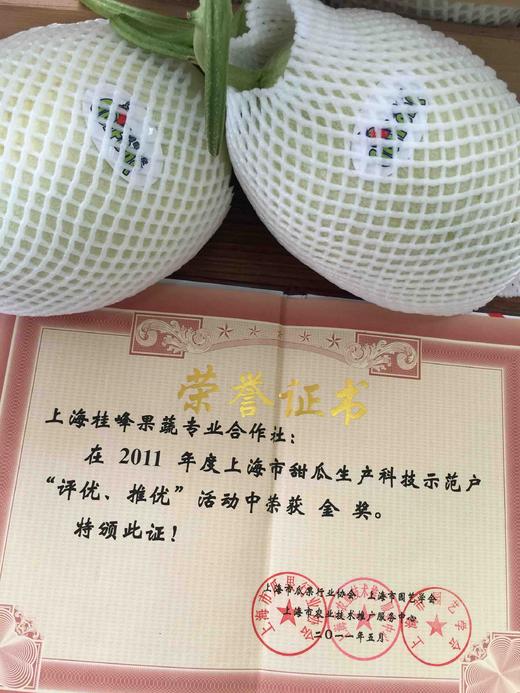 荣誉证书
上海桂峰果蔬专业合作社:
在 2011 年度上海市甜瓜生产科技示范户
“评优、推优”活动中荣获 金 奖。
特颁此证!
上海市瓜果行业协会 上海市园艺学会
上海市农业技术推广服务中心
二〇一一年五月